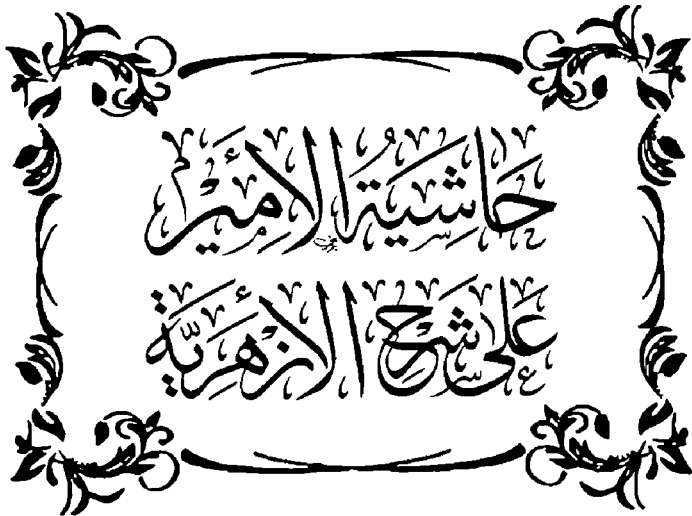 حَاشِيَةُ الأَمِيْر
عَلى شَرْحِ الأَزْهَرِيَّة